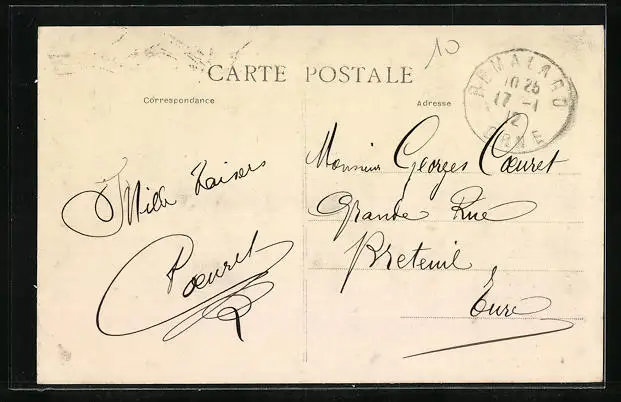 10
CARTE POSTALE
Correspondance
Adresse
REMALARD
10 25
17 -1
12
ORNE
Mille Baisers
Cœuret
Monsieur Georges Cœuret
Grande Rue
Breteuil
Eure